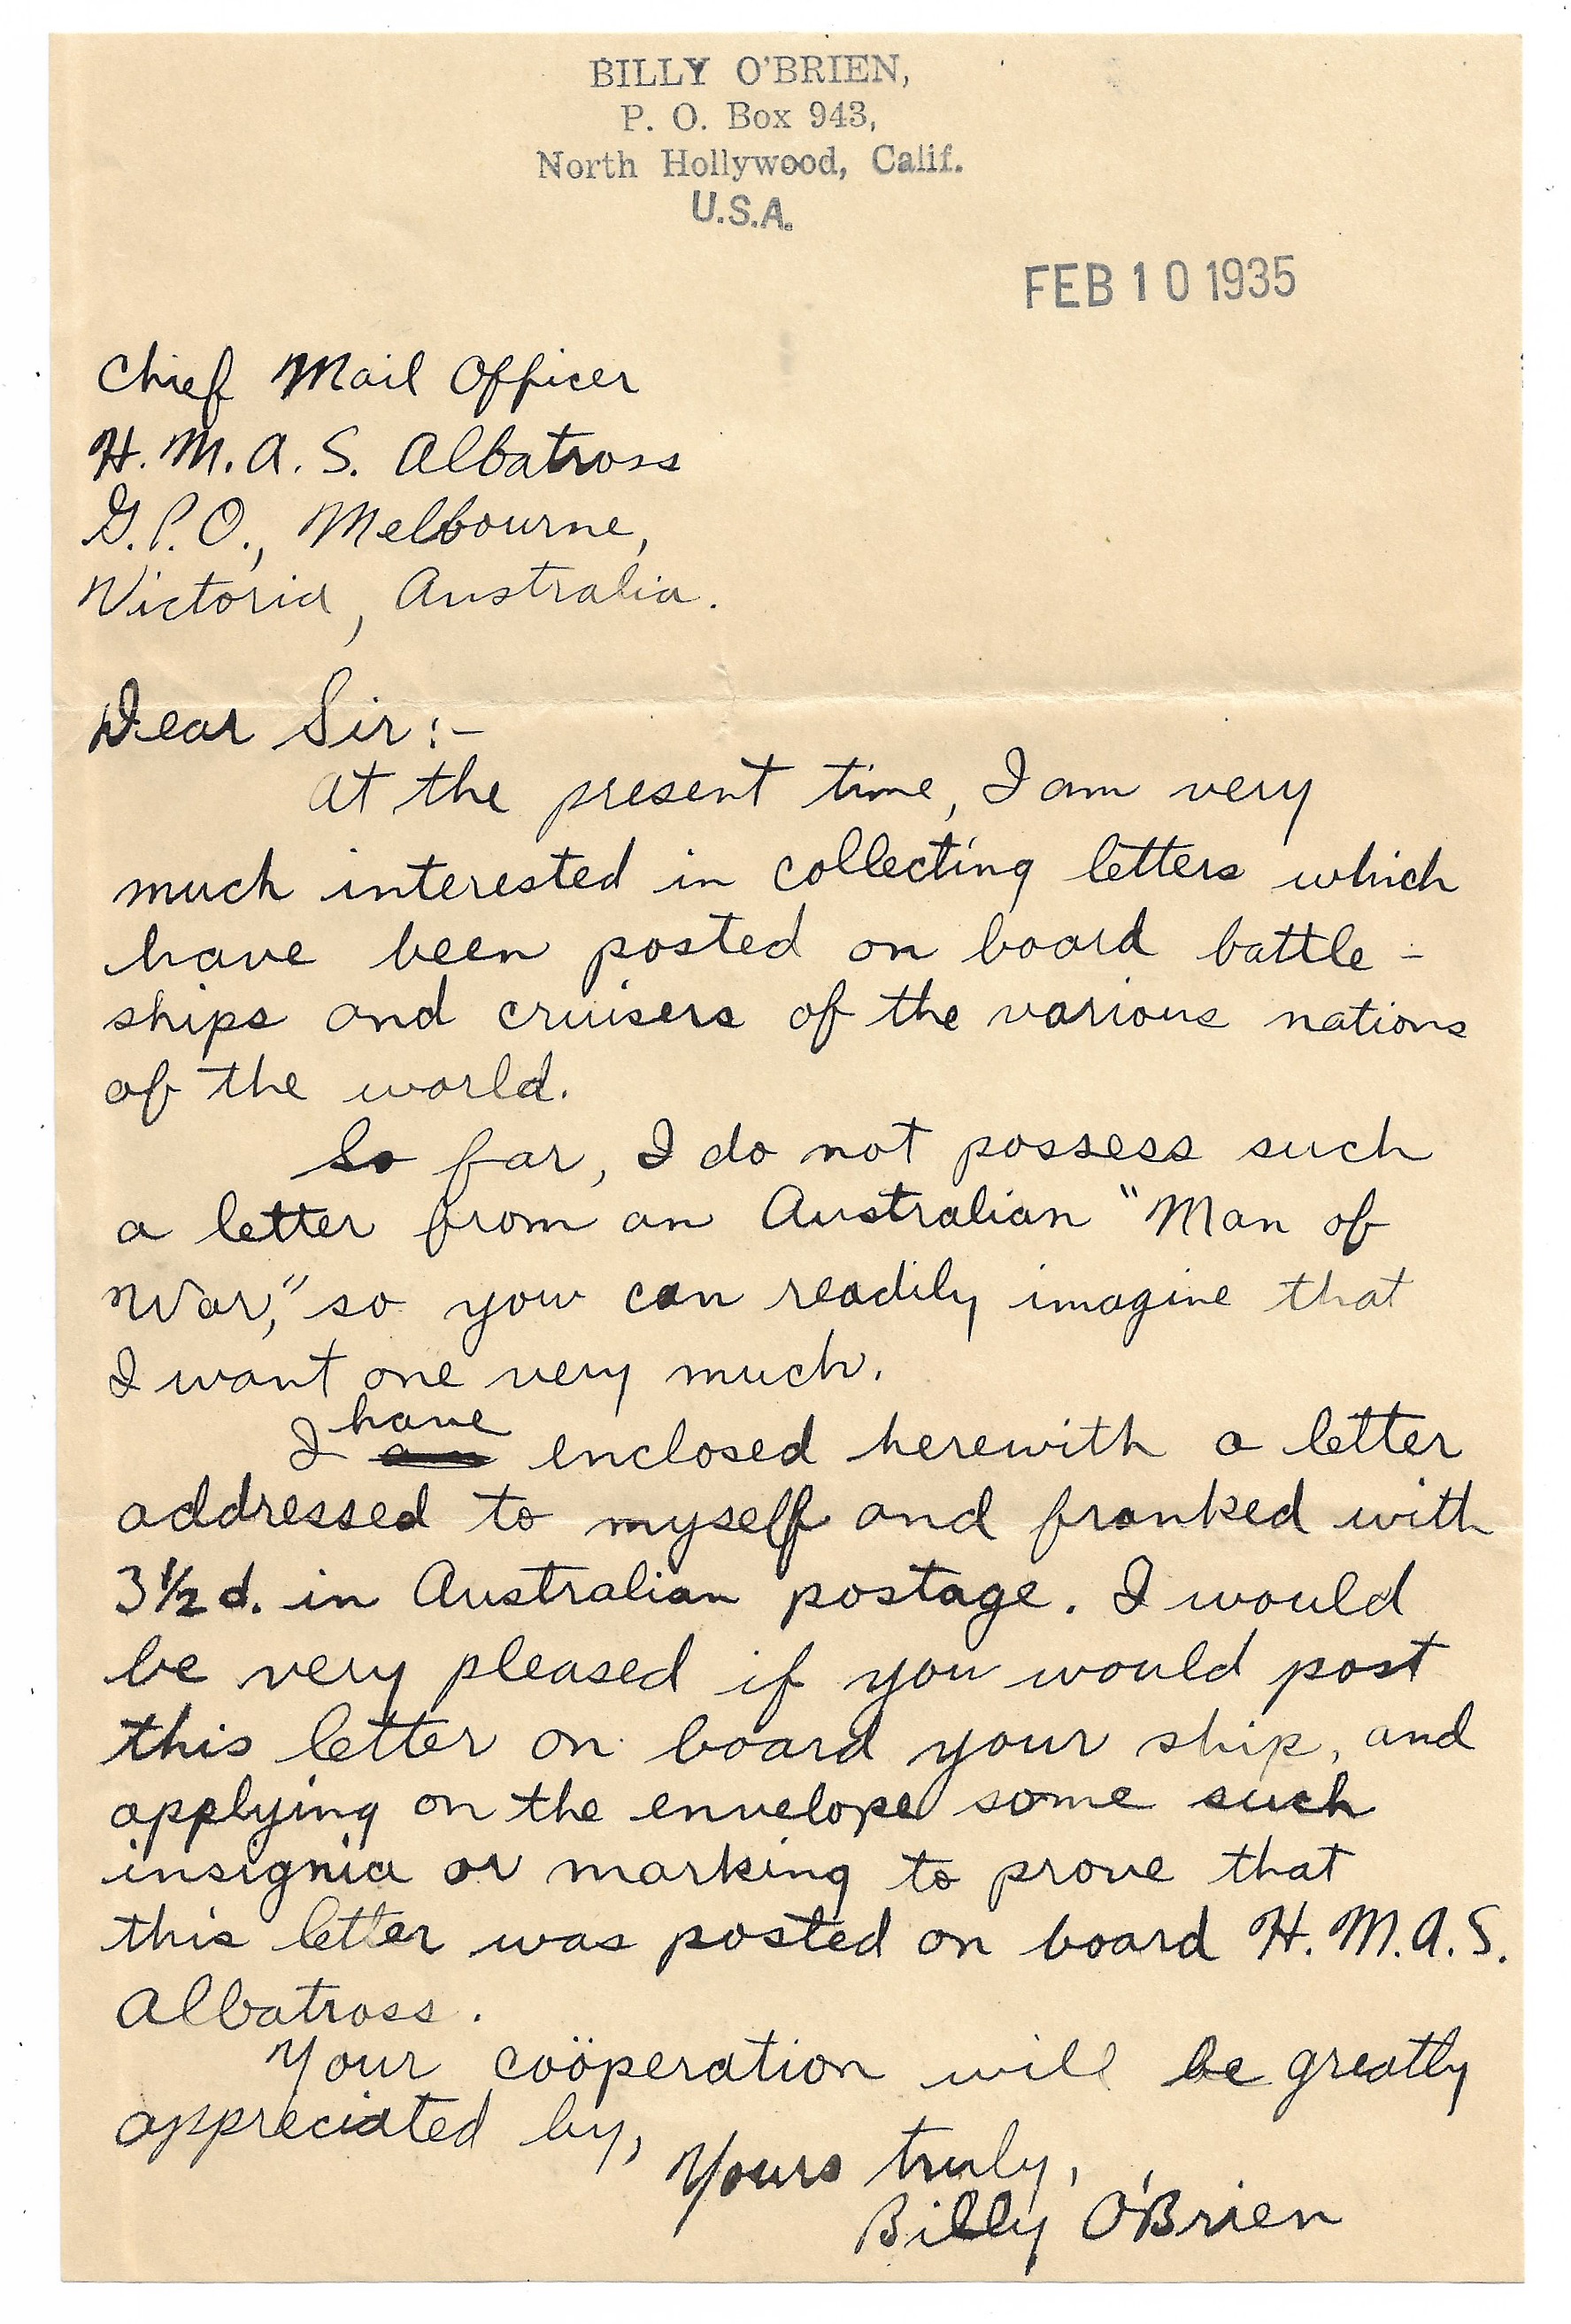 BILLY O'BRIEN,
P. O. Box 943,
North Hollywood, Calif.
U.S.A.
FEB 10 1935
Chief Mail Officer
H.M.A.S. Albatross
G.P.O., Melbourne,
Victoria, Australia.
Dear Sir:-
At the present time, I am very
much interested in collecting letters which
have been posted on board battle-
ships and cruisers of the various nations
of the world.
So far, I do not possess such
a letter from an Australian "Man of
War," so you can readily imagine that
I want one very much.
I have enclosed herewith a letter
addressed to myself and franked with
3½d. in Australian postage. I would
be very pleased if you would post
this letter on board your ship, and
applying on the envelope some such
insignia or marking to prove that
this letter was posted on board H.M.A.S.
Albatross.
Your coöperation will be greatly
appreciated by,
Yours truly,
Billy O'Brien